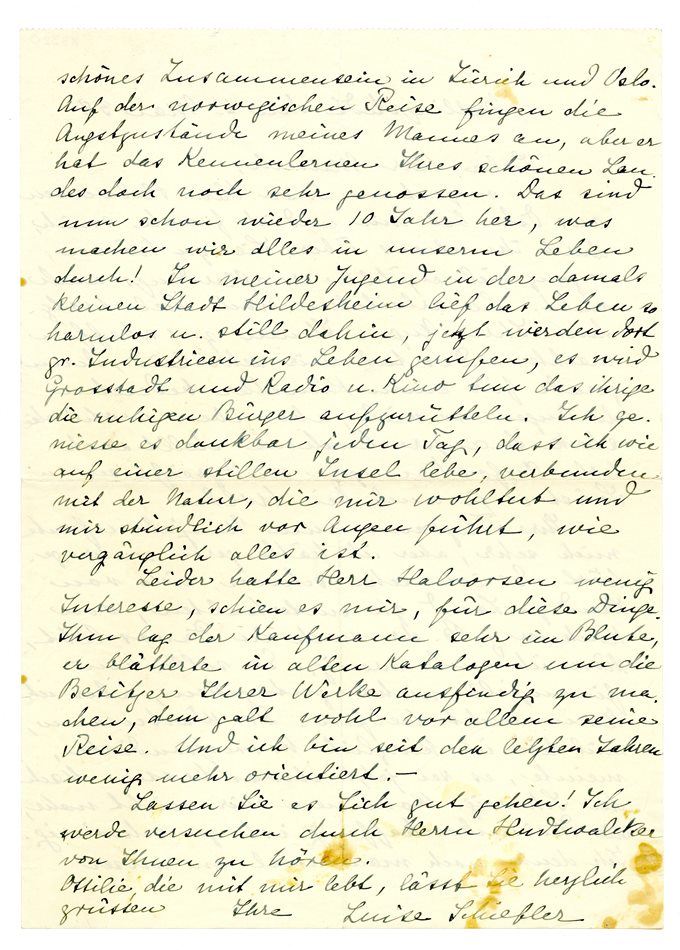 schönes Zusammensein in Zürich und Oslo.
Auf der norwegischen Reise fingen die
Angstzustände meines Mannes an, aber er
hat das Kennenlernen Ihres schönen Lan-
des doch noch sehr genossen. Das sind
nun schon wieder 10 Jahr her, was
machen wir alles in unserm Leben
durch! In meiner Jugend in der damals
kleinen Stadt Hildesheim lief das Leben so
harmlos u. still dahin, jetzt werden dort
gr. Industrieen ins Leben gerufen, es wird
Grosstadt und Radio u. Kino tun das ihrige
die ruhigen Bürger aufzurütteln. Ich ge-
niesse es dankbar jeden Tag, dass ich wie
auf einer stillen Insel lebe, verbunden
mit der Natur, die mir wohltut und
mir stündlich vor Augen führt, wie
vergänglich alles ist.
Leider hatte Herr Halvorsen wenig
Interesse, schien es mir, für diese Dinge.
Ihm lag der Kaufmann sehr im Blute,
er blätterte in alten Katalogen um die
Besitzer Ihrer Werke ausfindig zu ma-
chen, dem galt wohl vor allem seine
Reise. Und ich bin seit den letzten Jahren
wenig mehr orientiert. –
Lassen Sie es Sich gut gehen! Ich
werde versuchen durch Herrn Hudtwalcker
von Ihnen zu hören.
Ottilie, die mit mir lebt, lässt Sie herzlich
grüssen Ihre Luise Schiefler